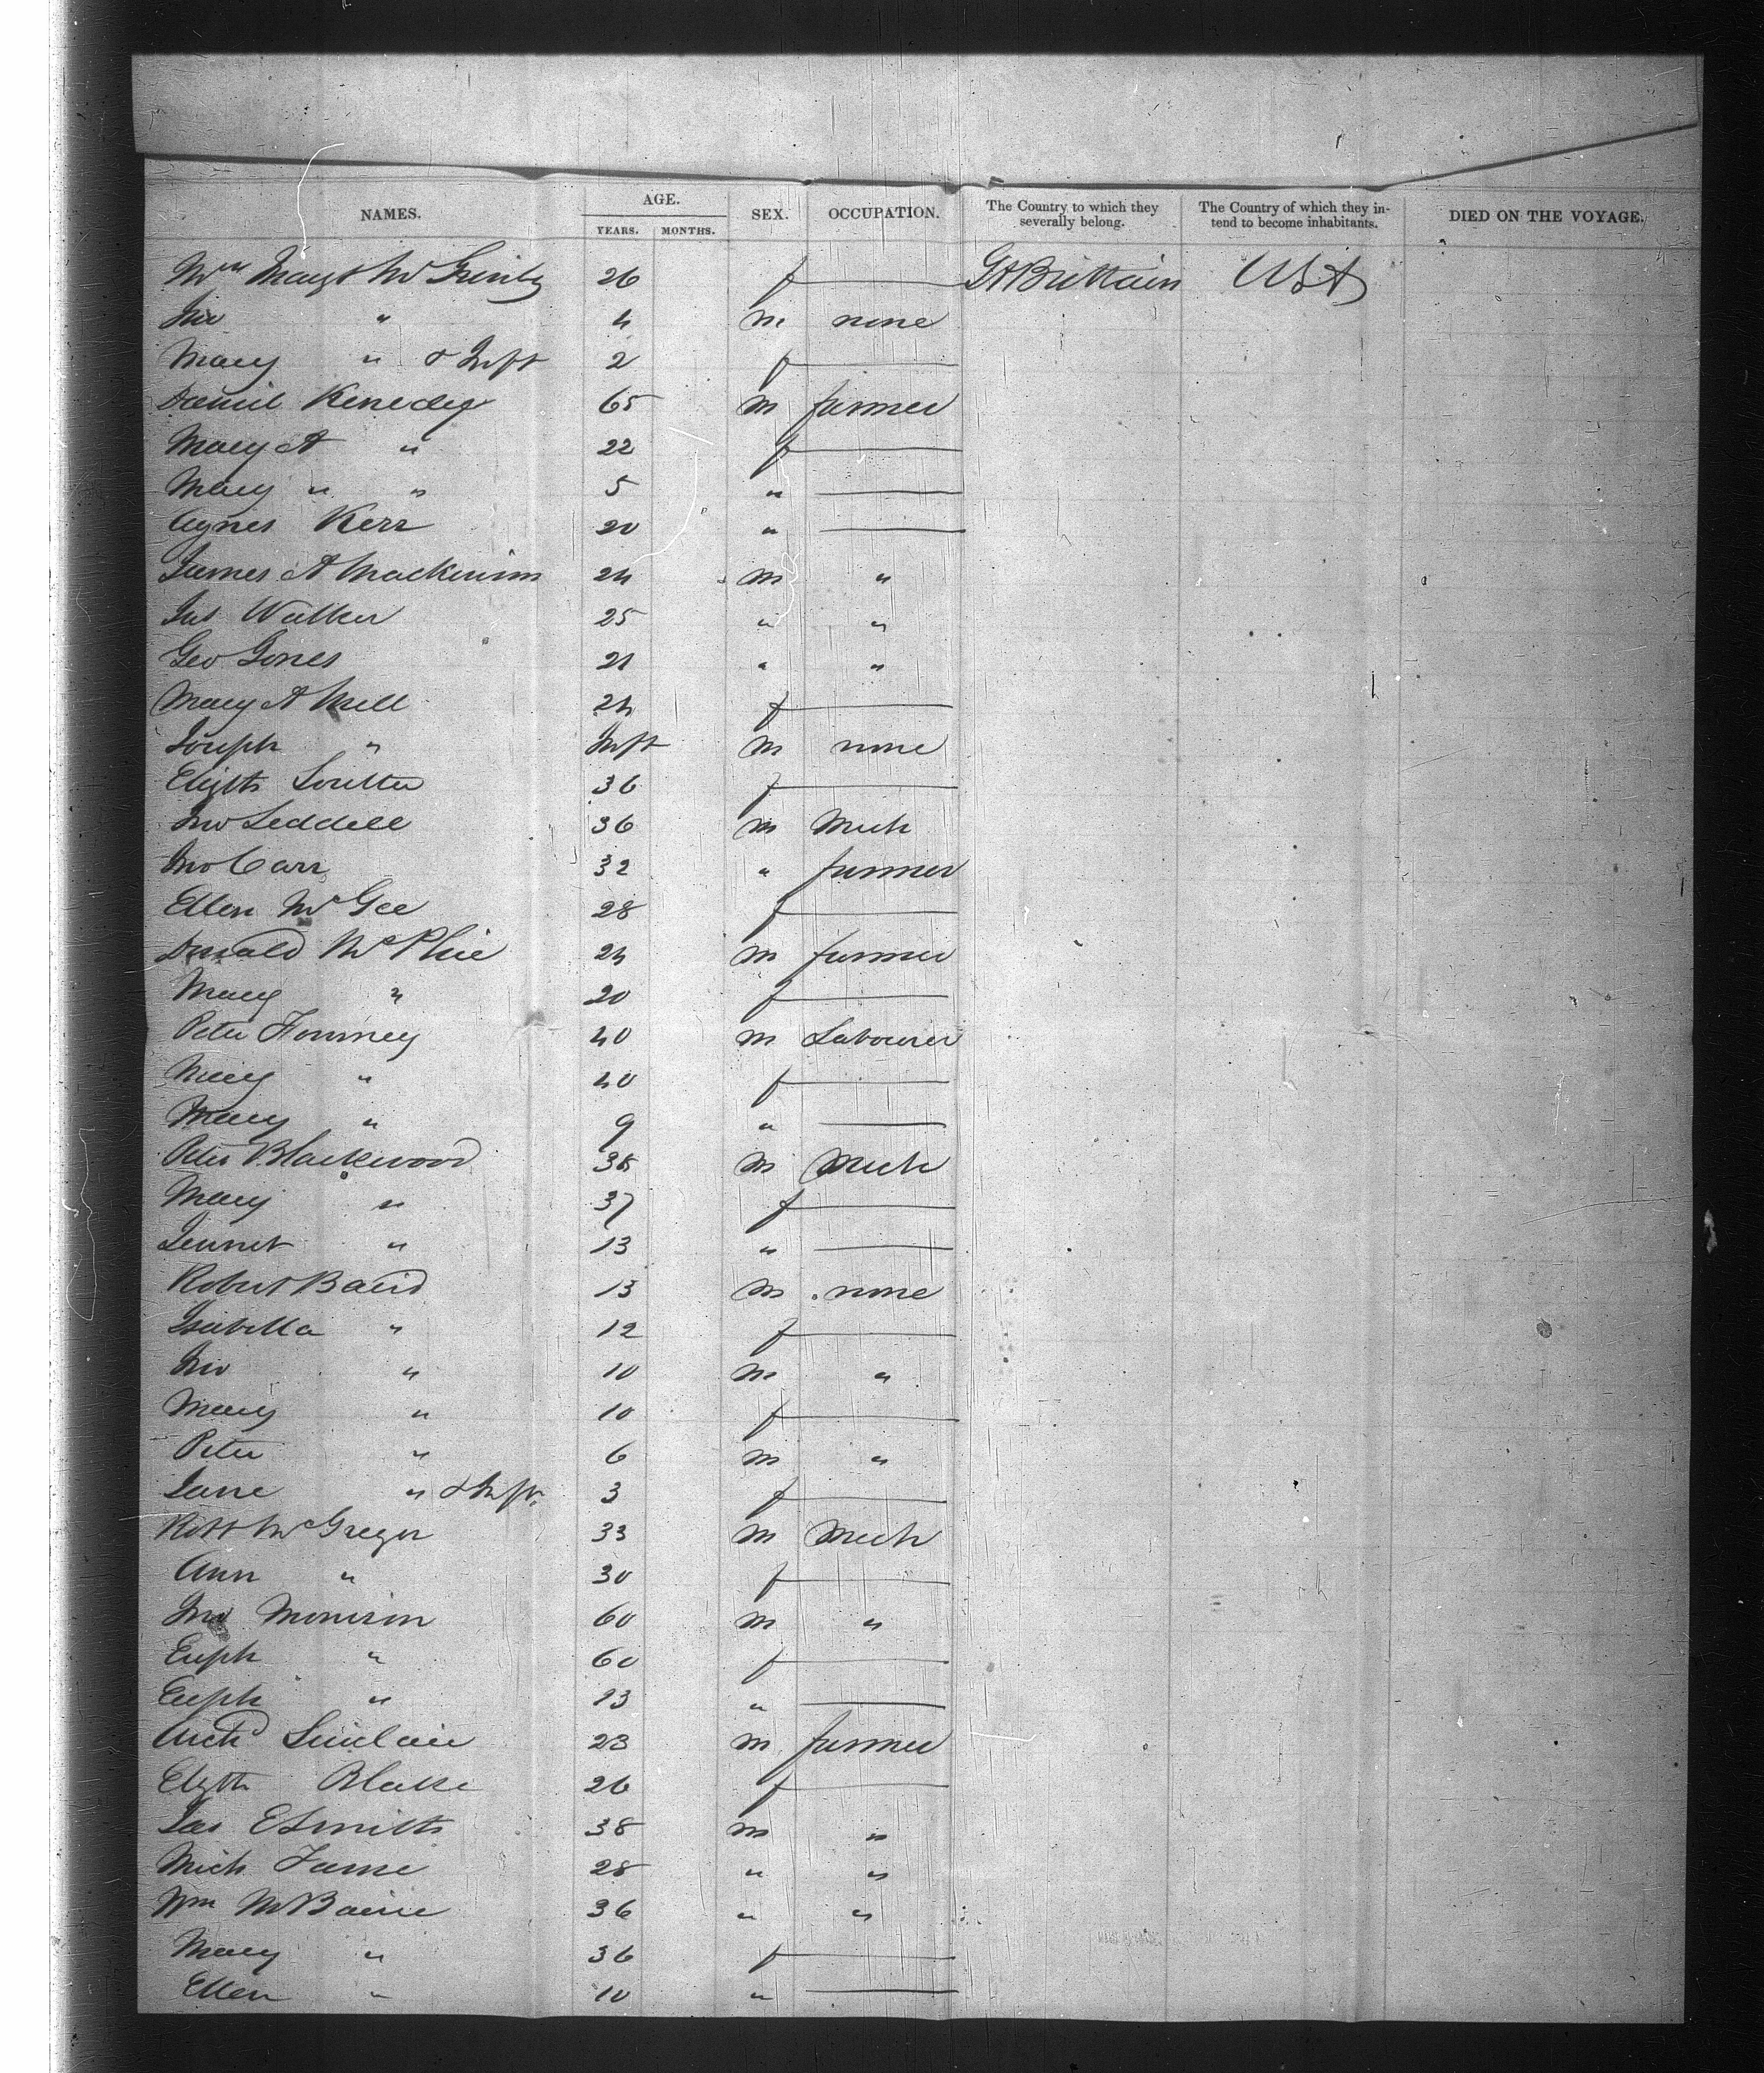 NAMES. AGE. SEX. OCCUPATION. The Country to which they severally belong. The Country of which they intend to become inhabitants. DIED ON THE VOYAGE.
YEARS. MONTHS.
Mrs Margt Mc 26 f — Gt Brittain USA
Jno " 4 m none
Mary " & Inft 2 f —
Daniel Kenedey 65 m farmer
Mary A " 22 f —
Mary " " 5 " —
Agnes Kerr 20 " —
James A Mackinnon 24 m "
Jas Walker 25 " "
Geo Jones 21 " "
Mary A Mill 24 f —
Joseph " Inft m none
Elizth Soutter 36 f —
Jno Leddell 36 m Mech
Jno Carr 32 " farmer
Ellen Mc Gee 28 f —
Donald Mc Phie 24 m farmer
Mary " 20 f —
Peter 40 m Labourer
Mary " 40 f —
Mary " 9 " —
Peter Blackwood 38 m Mech
Mary " 37 f —
Jennet " 13 " —
Robert Baird 13 m none
Isabella " 12 f —
Jno " 10 m "
Mary " 10 f —
Peter " 6 m "
Jane " & Inft. 3 f —
Robt Mc Gregor 33 m Mech
Ann " 30 f —
Jno Morrison 60 m "
Euph " 60 f —
Euph " 23 " —
Archd Sinclair 23 m farmer
Elizth Blake 26 f —
Jas E Smith 38 m "
Mich 28 " "
Wm Mc Baine 36 " "
Mary " 36 f —
Ellen " 10 " —